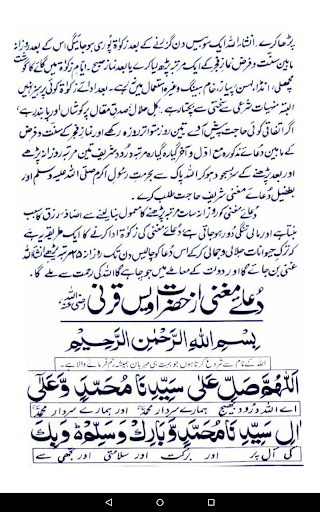 پڑھا کرے۔ انشاء اللہ ایک سو بیس دن گزرنے کے بعد زکوٰۃ پوری ہو جائیگی اس کے بعد روزانہ
مابین سنت و فرض نماز فجر کے ایک مرتبہ پڑھ لیا کرے یا بعد نماز صبح۔ ایام زکوٰۃ میں گائے کا گوشت
مچھلی، انڈا، لہسن، پیاز، خام، ہینگ وغیرہ استعمال میں نہ لائے۔ بعد ادائے زکوٰۃ کوئی پرہیز نہیں
البتہ منہیات شرعی سے سختی سے بچتا رہے۔ اکل حلال، صدق مقال پر کوشاں اور پابند رہے،
اگر اتفاقی کوئی حاجت پیش آئے تین روز متواتر روزہ رکھے اور نماز فجر کے سنت و فرض
کے مابین دعائے مذکورہ مع اول و آخر گیارہ گیارہ مرتبہ درود شریف تین مرتبہ روزانہ پڑھے
اور بعد پڑھنے کے سر بسجود ہو کر اللہ پاک سے بحرمت رسول اکرم صلی اللہ علیہ وسلم اور
بطفیل دعائے مغنی شریف حاجت طلب کرے۔
دعائے مغنی کو روزانہ سات مرتبہ پڑھنے کا معمول بنا لینے سے اضافہ رزق کا سبب
بنتا ہے اور مالی تنگی دور ہو جاتی ہے دعائے مغنی کی زکوٰۃ ادا کرنے کا ایک طریقہ یہ ہے
کہ ترک حیوانات جلالی و جمالی کر کے اس دعا کو چالیس دن تک روزانہ ۲۵ مرتبہ پڑھے انشاء اللہ
غنی بن جائے گا اور دولت کے معاملے میں جو چاہے گا اللہ کی رحمت سے ملے گا۔
دعائے مغنی از حضرت اویس قرنی رضی اللہ عنہ
بِسْمِ اللهِ الرَّحْمٰنِ الرَّحِيْمِ
اللہ کے نام سے شروع کرتا ہوں جو بہت ہی مہربان ہمیشہ رحم فرمانے والا ہے۔
اَللّٰهُمَّ صَلِّ عَلٰى سَيِّدِنَا مُحَمَّدٍ وَّعَلٰى
اے اللہ درود بھیج ہمارے سردار محمد اور ہمارے سردار محمد
اٰلِ سَيِّدِنَا مُحَمَّدٍ وَّبَارِكْ وَسَلِّمْ وَبِكَ
کی آل پر اور برکت اور سلامتی اور تجھی سے